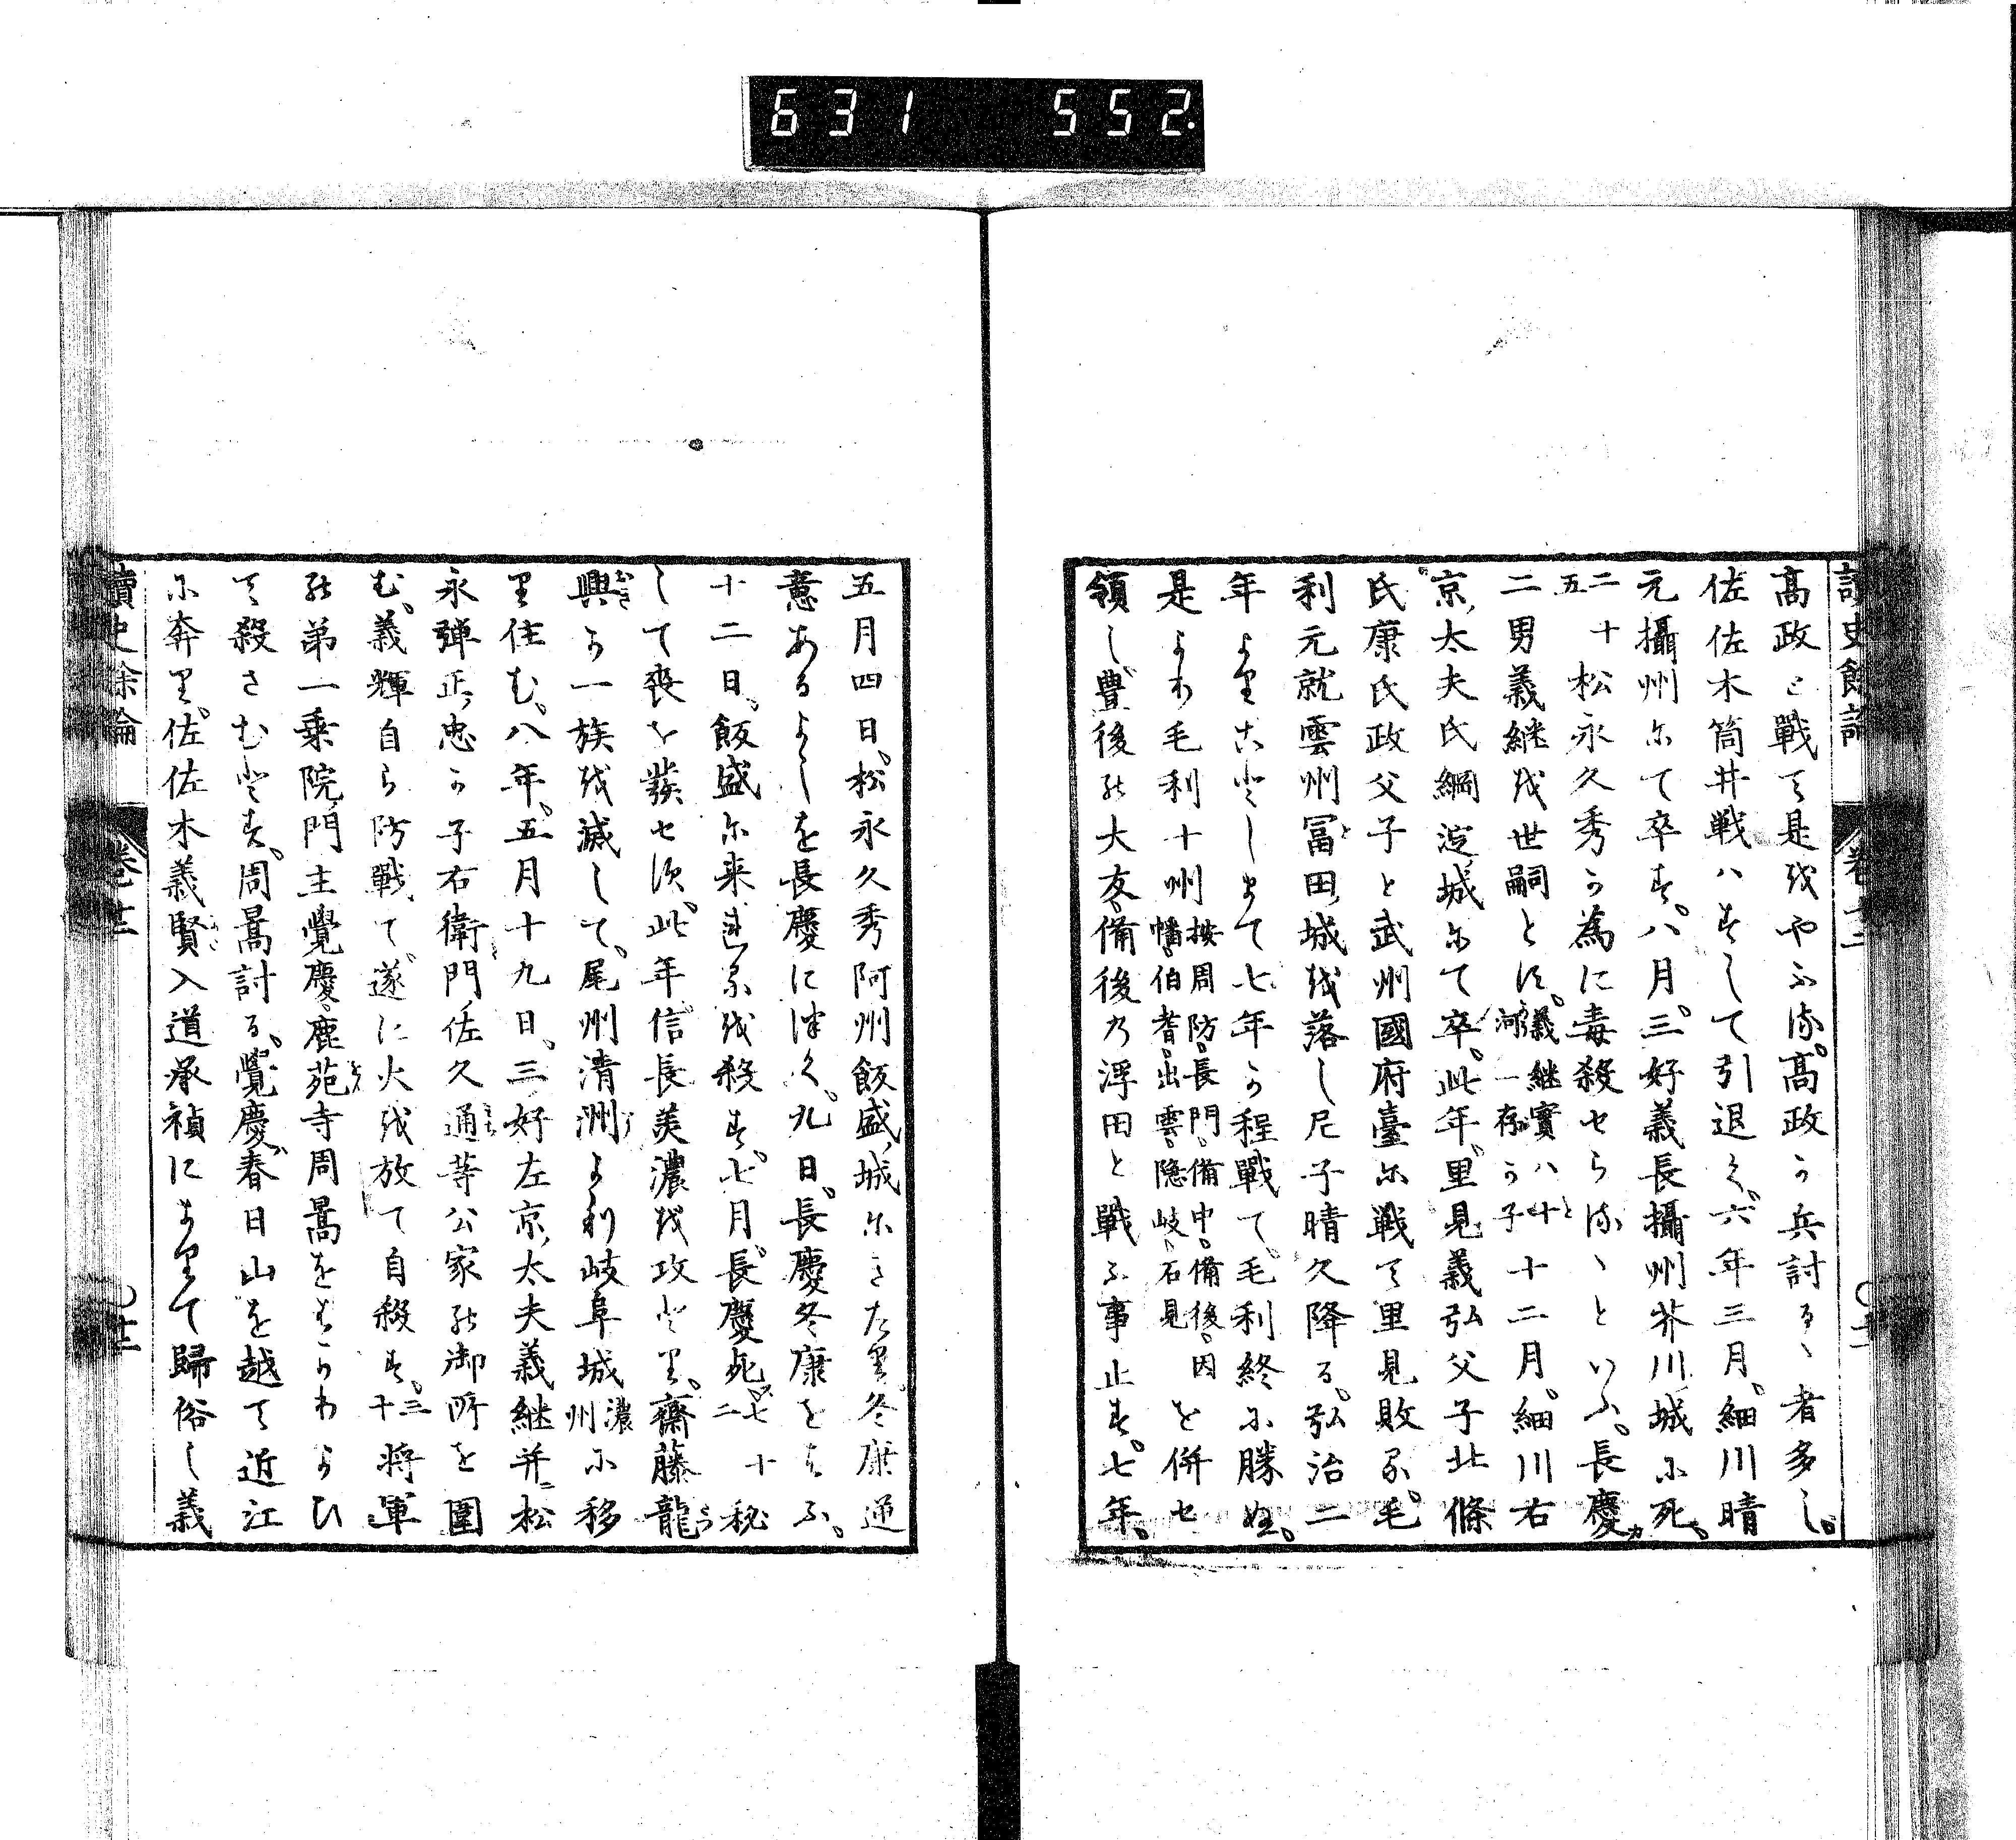 631 552
高政と戰て是をやふる。高政か兵討るゝ者多し。
佐佐木筒井戦ハすして引退く。六年三月。細川晴
元攝州にて卒す。八月。三好義長攝州芥川城に死。
二十五松永久秀か為に毒殺せらるゝといふ。長慶
二男義継を世嗣とす。義継實ハ十河一存か子十二月。細川右
京太夫氏綱淀城にて卒。此年里見義弘父子北條
氏康氏政父子と武州國府臺に戦て里見敗る。毛
利元就雲州冨田城を落し尼子晴久降る。弘治二
年よりことしまて七年か程戰て。毛利終に勝ぬ。
是より毛利十州按周防。長門。備中。備後。因幡。伯耆。出雲。隠岐。石見を併せ
領し豊後の大友。備後の浮田と戰ふ事止す。七年。
五月四日。松永久秀阿州飯盛城にきたり。冬康逆
意あるよしを長慶に讒く。九日。長慶冬康をよふ。
十二日。飯盛に来るを殺す。七月。長慶死。四十二秘
して喪を發せす。此年信長美濃を攻とり。齋藤龍
興か一族を滅して。尾州清洲より岐阜城濃州に移
り住む。八年。五月十九日。三好左京太夫義継并松
永弾正忠か子右衛門佐久通等公家の御所を圍
む。義輝自ら防戰て遂に火を放て自殺す。三十將軍
の弟一乗院門主覺慶。鹿苑寺周暠をもたはかりよひ
て殺さむとす。周暠討る。覺慶春日山を越て近江
に奔り。佐佐木義賢入道承禎によりて歸俗し義
讀史余論 巻十二